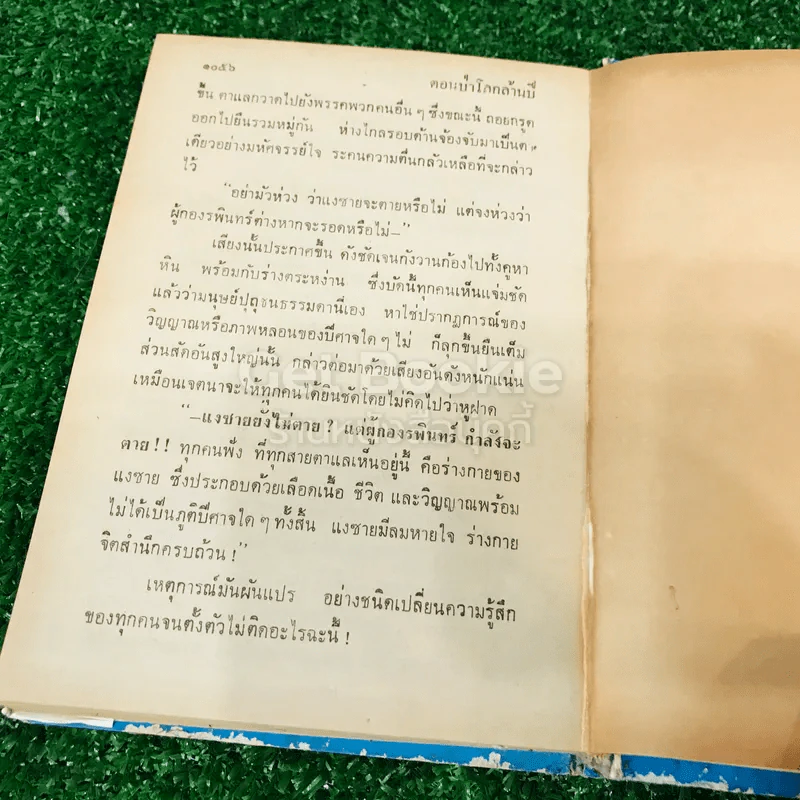 ๑๐๕๖
ตอนป่าโลกล้านปี
ขึ้น ตาแลกวาดไปยังพรรคพวกคนอื่น ๆ ซึ่งขณะนี้ ถอยกรูด
ออกไปยืนรวมหมู่กัน ห่างไกลรอบด้านจ้องจับมาเป็นตา
เดียวอย่างมหัศจรรย์ใจ ระคนความตื่นกลัวเหลือที่จะกล่าว
ไว้
“อย่ามัวห่วง ว่าแงซายจะตายหรือไม่ แต่จงห่วงว่า
ผู้กองรพินทร์ต่างหากจะรอดหรือไม่–”
เสียงนั้นประกาศขึ้น ดังชัดเจนกังวานก้องไปทั้งคูหา
หิน พร้อมกับร่างตระหง่าน ซึ่งบัดนี้ทุกคนเห็นแจ่มชัด
แล้วว่ามนุษย์ปุถุชนธรรมดานี่เอง หาใช่ปรากฏการณ์ของ
วิญญาณหรือภาพหลอนของปีศาจใด ๆ ไม่ ก็ลุกขึ้นยืนเต็ม
ส่วนสัดอันสูงใหญ่นั้น กล่าวต่อมาด้วยเสียงอันดังหนักแน่น
เหมือนเจตนาจะให้ทุกคนได้ยินชัดโดยไม่คิดไปว่าหูฝาด
“–แงซายยังไม่ตาย ? แต่ผู้กองรพินทร์ กำลังจะ
ตาย ! ! ทุกคนฟัง ที่ทุกสายตาแลเห็นอยู่นี้ คือร่างกายของ
แงซาย ซึ่งประกอบด้วยเลือดเนื้อ ชีวิต และวิญญาณพร้อม
ไม่ได้เป็นภูติปีศาจใด ๆ ทั้งสิ้น แงซายมีลมหายใจ ร่างกาย
จิตสำนึกครบถ้วน !”
เหตุการณ์มันผันแปร อย่างชนิดเปลี่ยนความรู้สึก
ของทุกคนจนตั้งตัวไม่ติดอะไรฉะนี้ !
Get Bookie
ร้านหนังสือบุ๊กกี้